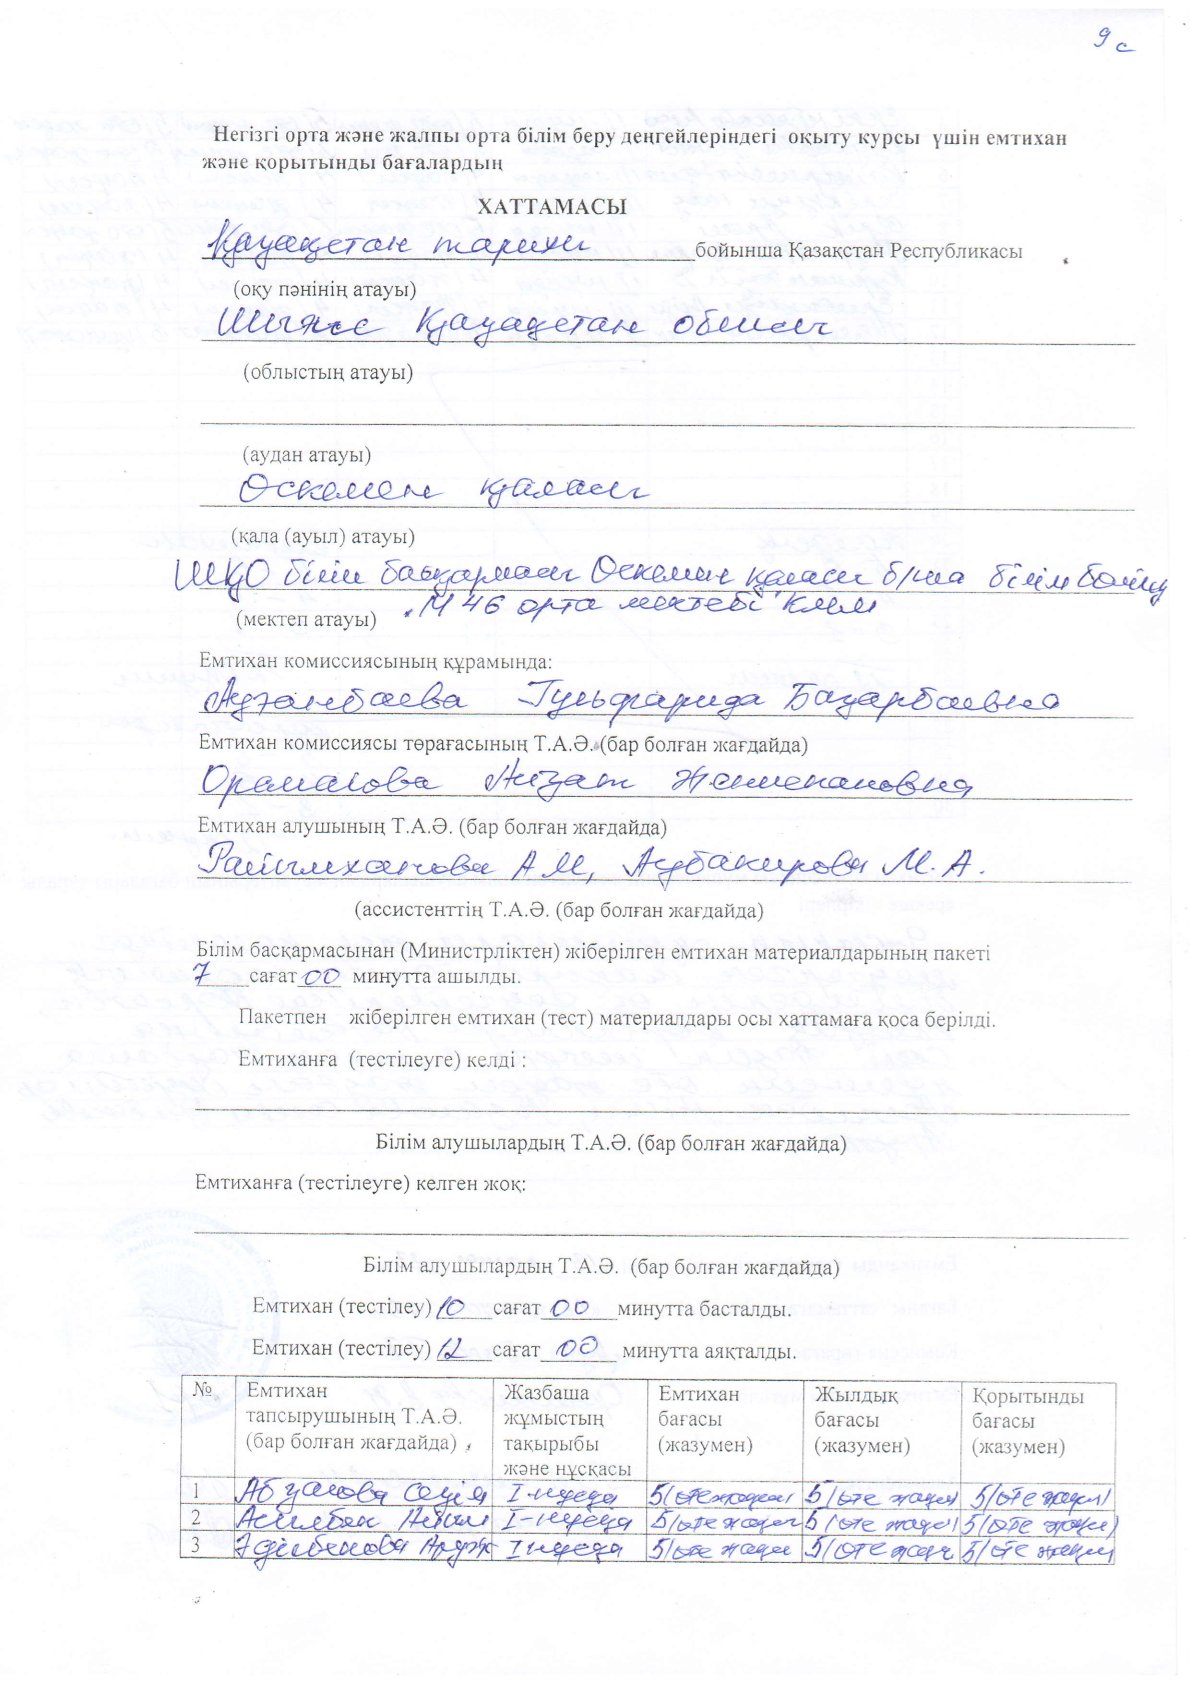 9 с
Негізгі орта және жалпы орта білім беру деңгейлеріндегі оқыту курсы үшін емтихан
және қорытынды бағалардың
ХАТТАМАСЫ
Қазақстан тарихы бойынша Қазақстан Республикасы
(оқу пәнінің атауы)
Шығыс Қазақстан облысы
(облыстың атауы)
(аудан атауы)
Өскемен қаласы
(қала (ауыл) атауы)
ШҚО білім басқармасы Өскемен қаласы б/ша білім бөлімі
"№ 46 орта мектебі" КММ
(мектеп атауы)
Емтихан комиссиясының құрамында:
Аубанбаева Гульфарида Базарбаевна
Емтихан комиссиясы төрағасының Т.А.Ә. (бар болған жағдайда)
Жанженановна
Емтихан алушының Т.А.Ә. (бар болған жағдайда)
А М, Аубакирова М.А.
(ассистенттің Т.А.Ә. (бар болған жағдайда)
Білім басқармасынан (Министрліктен) жіберілген емтихан материалдарының пакеті
7 сағат 00 минутта ашылды.
Пакетпен жіберілген емтихан (тест) материалдары осы хаттамаға қоса берілді.
Емтиханға (тестілеуге) келді :
Білім алушылардың Т.А.Ә. (бар болған жағдайда)
Емтиханға (тестілеуге) келген жоқ:
Білім алушылардың Т.А.Ә. (бар болған жағдайда)
Емтихан (тестілеу) 10 сағат 00 минутта басталды.
Емтихан (тестілеу) 12 сағат 00 минутта аяқталды.
№ Емтихан тапсырушының Т.А.Ә. (бар болған жағдайда) Жазбаша жұмыстың тақырыбы және нұсқасы Емтихан бағасы (жазумен) Жылдық бағасы (жазумен) Қорытынды бағасы (жазумен)
1 I-нұсқа 5/өте жақсы/ 5/өте жақсы/ 5/өте жақсы/
2 Асылбек I-нұсқа 5/өте жақсы/ 5/өте жақсы/ 5/өте жақсы/
3 I нұсқа 5/өте жақсы 5/өте жақсы 5/өте жақсы